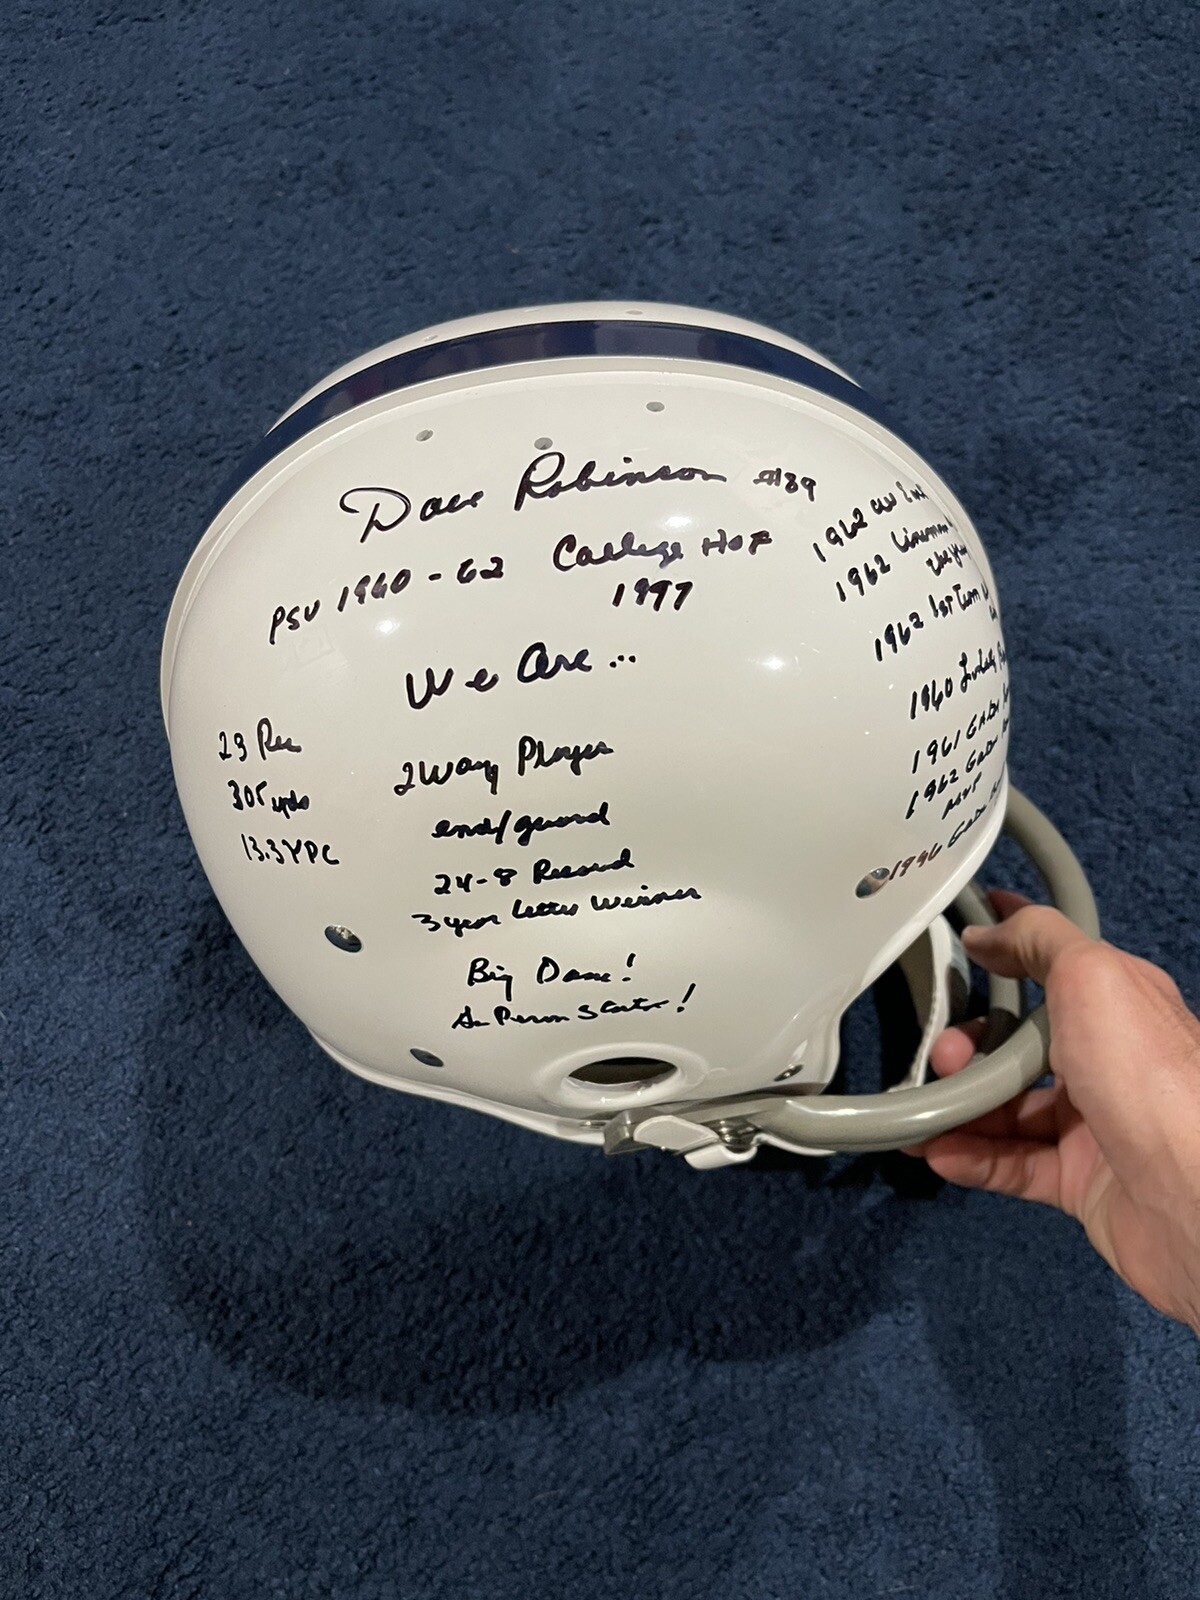 Dave Robinson #89
PSU 1960-62 College HOF
1997
We Are...
23 Rec
305 yds
13.3 YPC
2 Way Player
end/guard
24-8 Record
3 year letter Winner
Big Dave!
Penn Stater!
1962
1962 Lineman
1962 1st Team
1960
1961 Gator
1962 Gator
MVP
1996 Gator